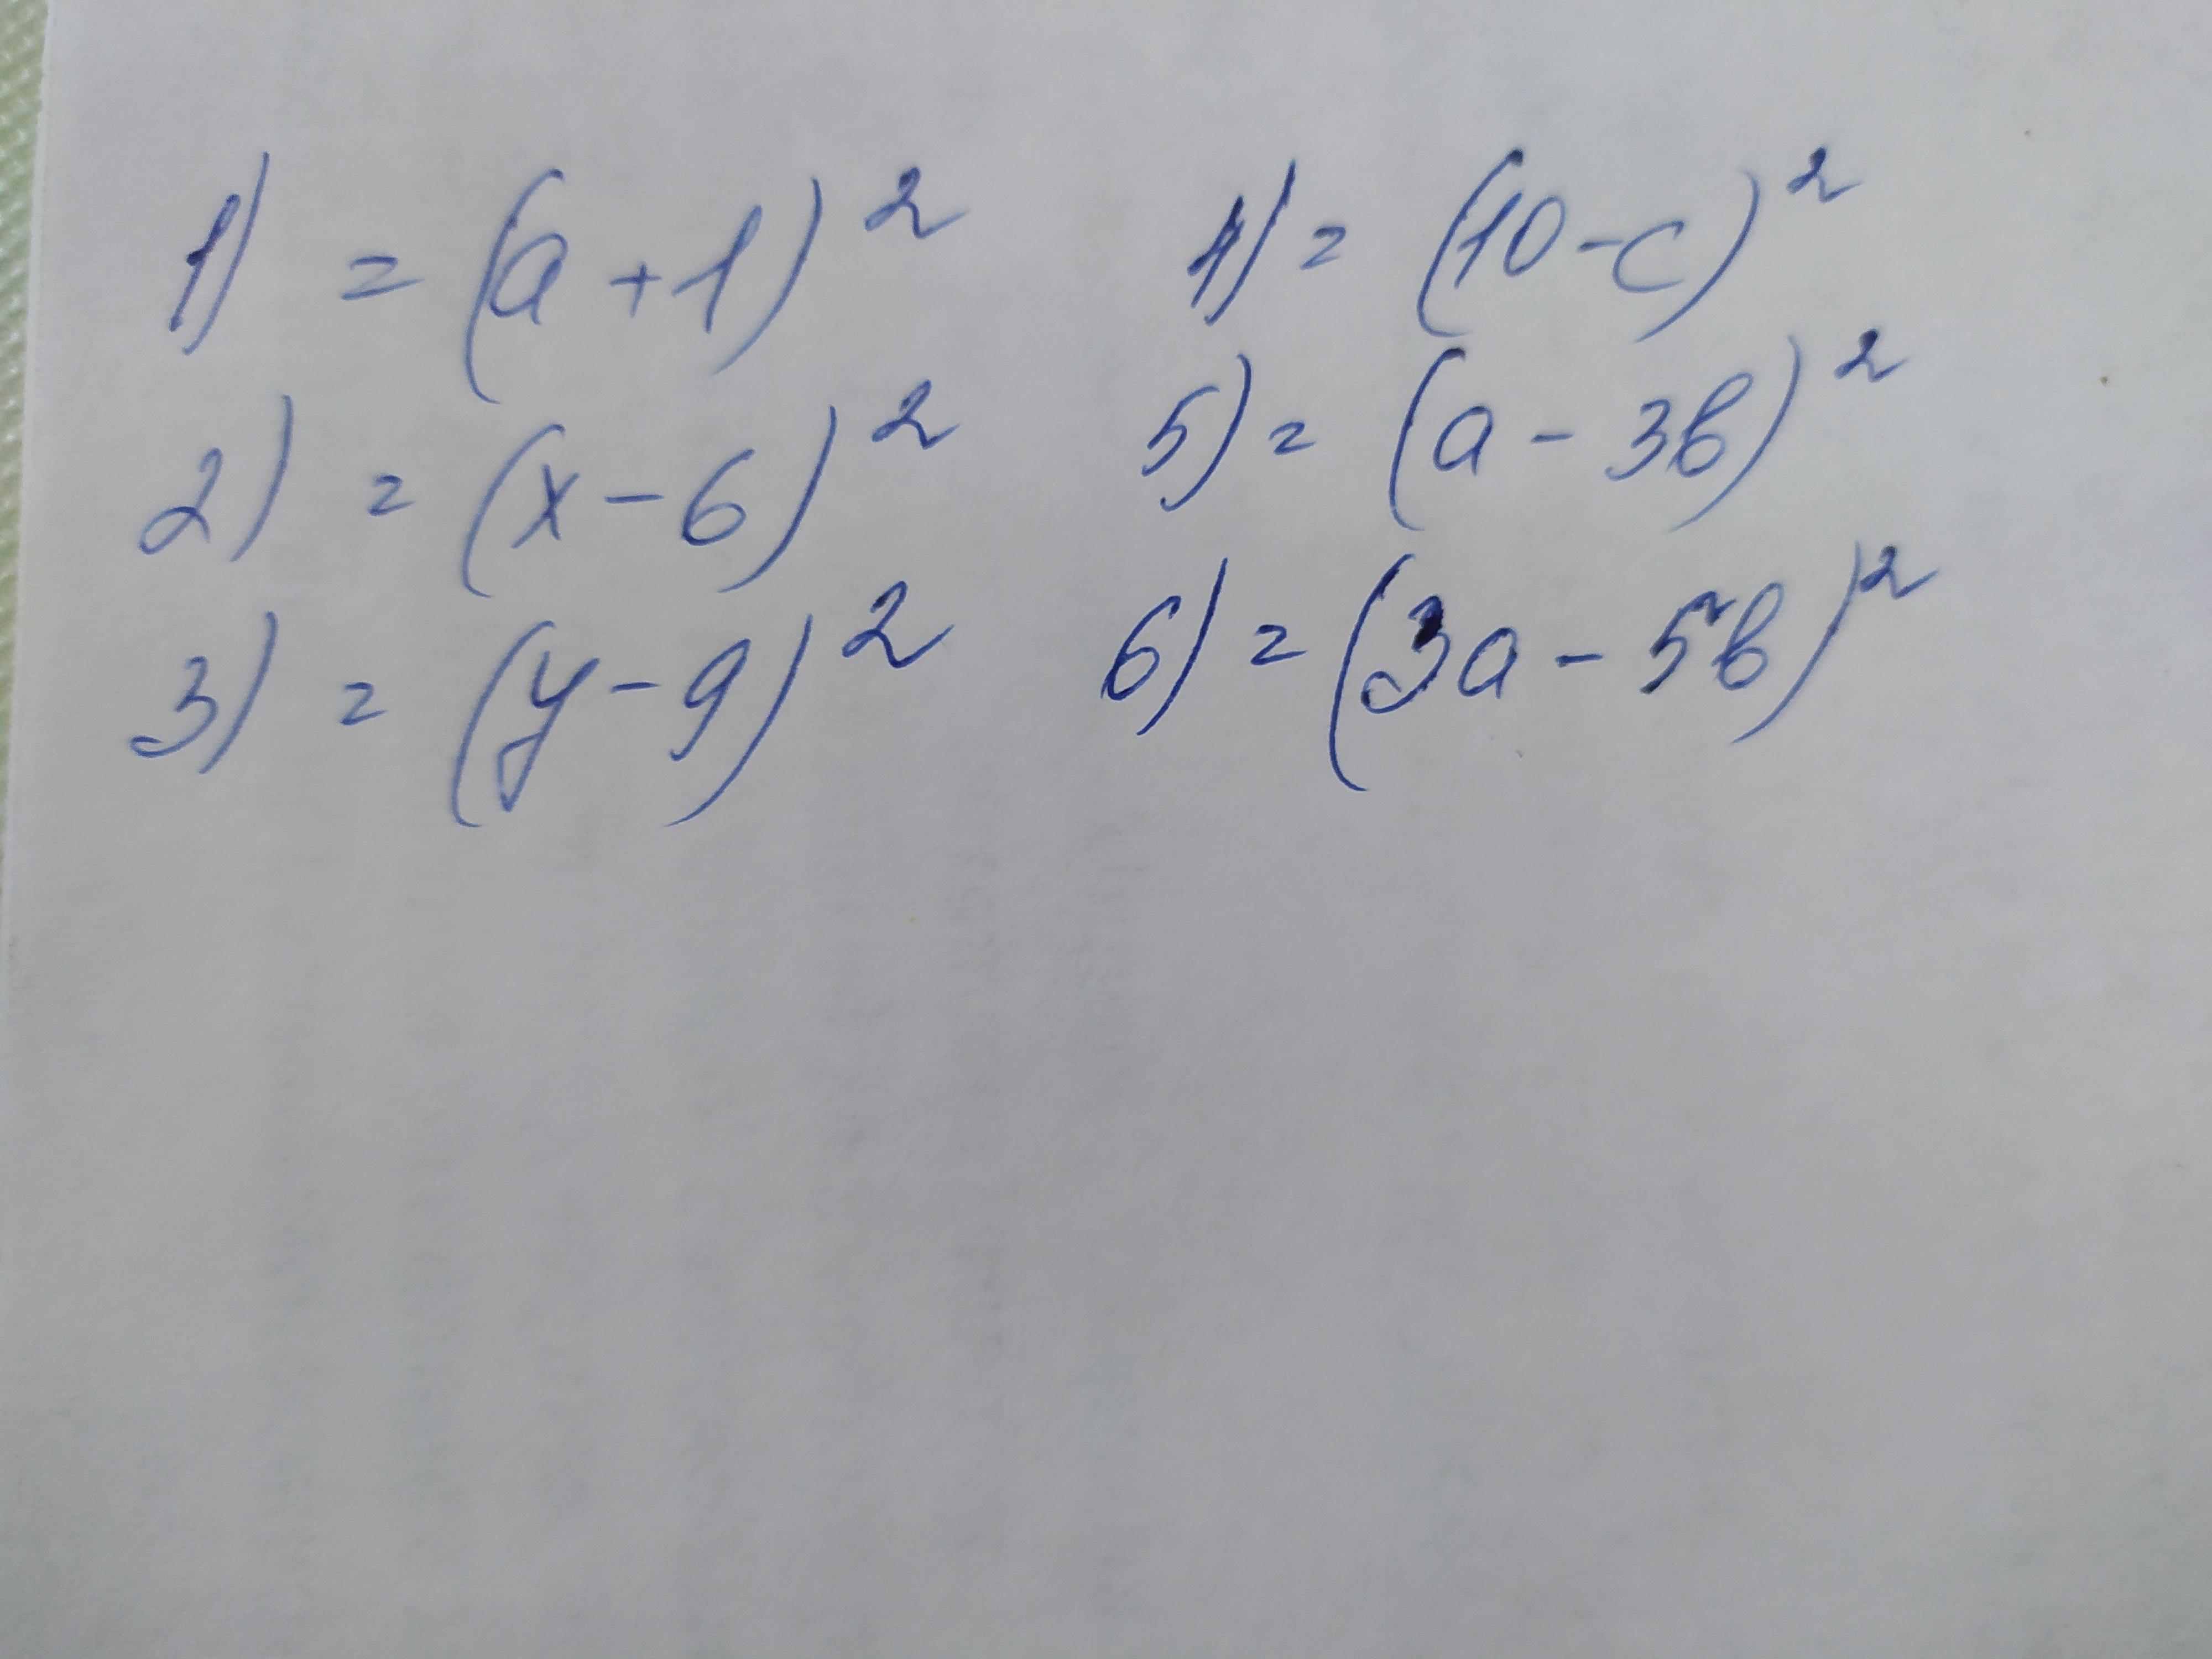 1) = (a + 1)²
2) = (x - 6)²
3) = (y - 9)²
4) = (10 - c)²
5) = (a - 3b)²
6) = (3a - 5b)²